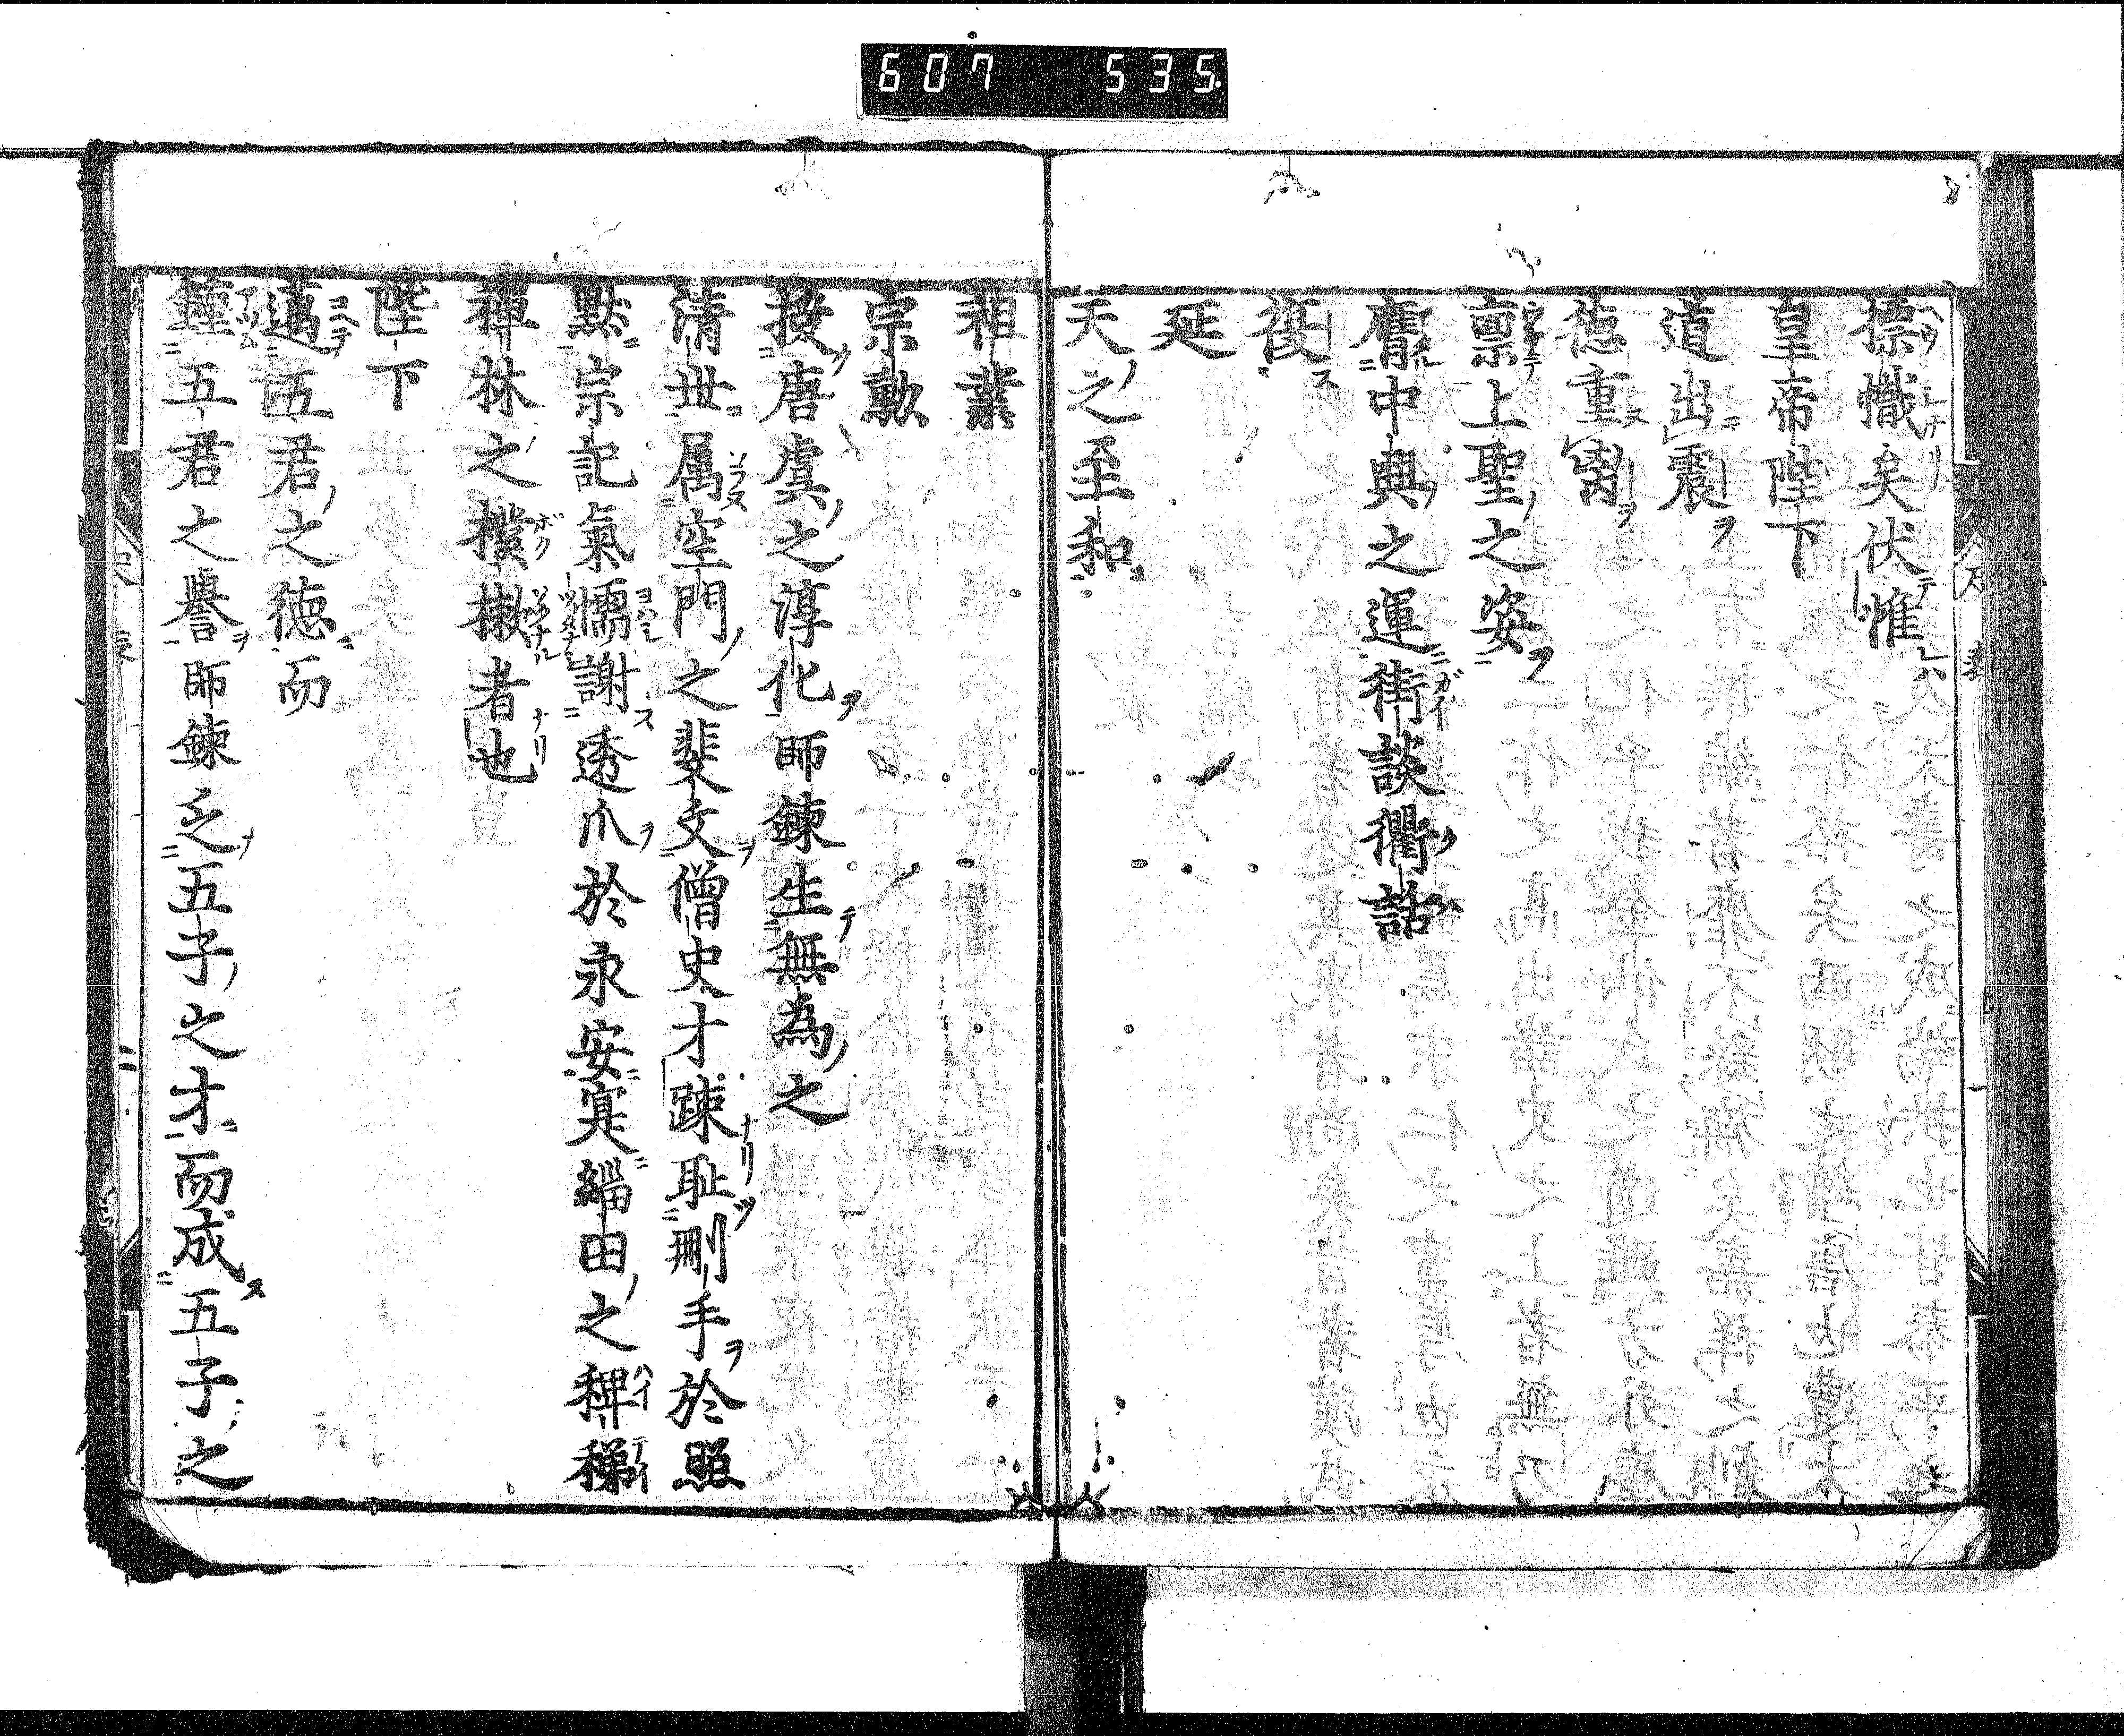 607 535
標幟矣伏惟
皇帝陛下
道出震
德重离
禀上聖之姿
膺中興之運街談衢話
復
延
天之至和
祖業
宗勲
授唐虞之淳化師錬生無為之
清世属空門之斐文僧史才疎耻刪手於照
默宗記氣懦謝透爪於永安寔緇田之稗稊
禅林之樸樕者也
陛下
邁五君之徳而
鍾五君之譽師錬乏五子之才而成五子之